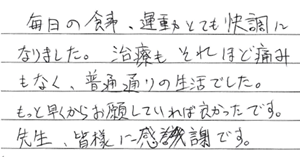 毎日の食事、運動とても快調に
なりました。治療もそれほど痛み
もなく、普通通りの生活でした。
もっと早くからお願していれば良かったです。
先生、皆様に感謝です。